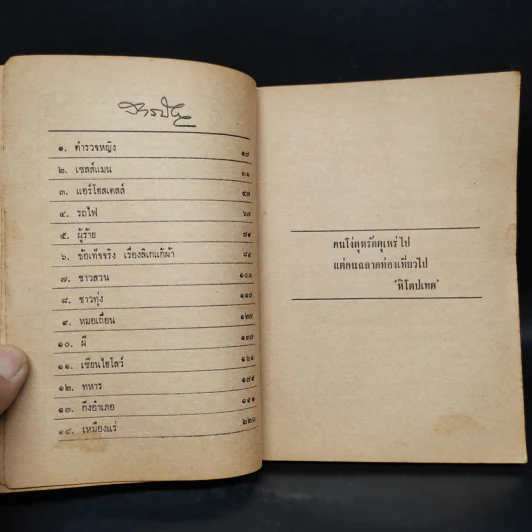 สารบัญ
๑. ตำรวจหญิง ๑๗
๒. เซลส์แมน ๓๑
๓. แอร์โฮสเตสส์ ๔๗
๔. รถไฟ ๖๗
๕. ผู้ร้าย ๗๙
๖. ข้อเท็จจริง เรื่องลิเกแก้ผ้า
๗. ชาวสวน ๑๐๓
๘. ชาวทุ่ง ๑๑๗
๙. หมอเถื่อน ๑๒๗
๑๐. ผี ๑๓๗
๑๑. เซียนไฮโลว์ ๑๖๑
๑๒. ทหาร
๑๓. กิ่งอำเภอ ๑๙๑
๑๔. เหมืองแร่
คนโง่ตุหรัดตุเหร่ไป
แต่คนฉลาดท่องเที่ยวไป
'หิโตปเทศ'